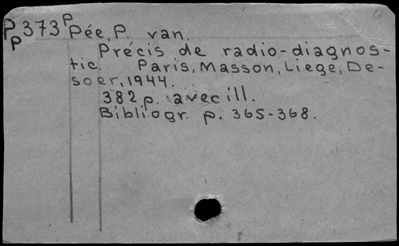 P 373 P Pée, P. van.
p
Précis de radio-diagnos-
tic. Paris, Masson, Liege, De-
soer, 1944.
382 p. avec ill.
Bibliogr. p. 365-368.